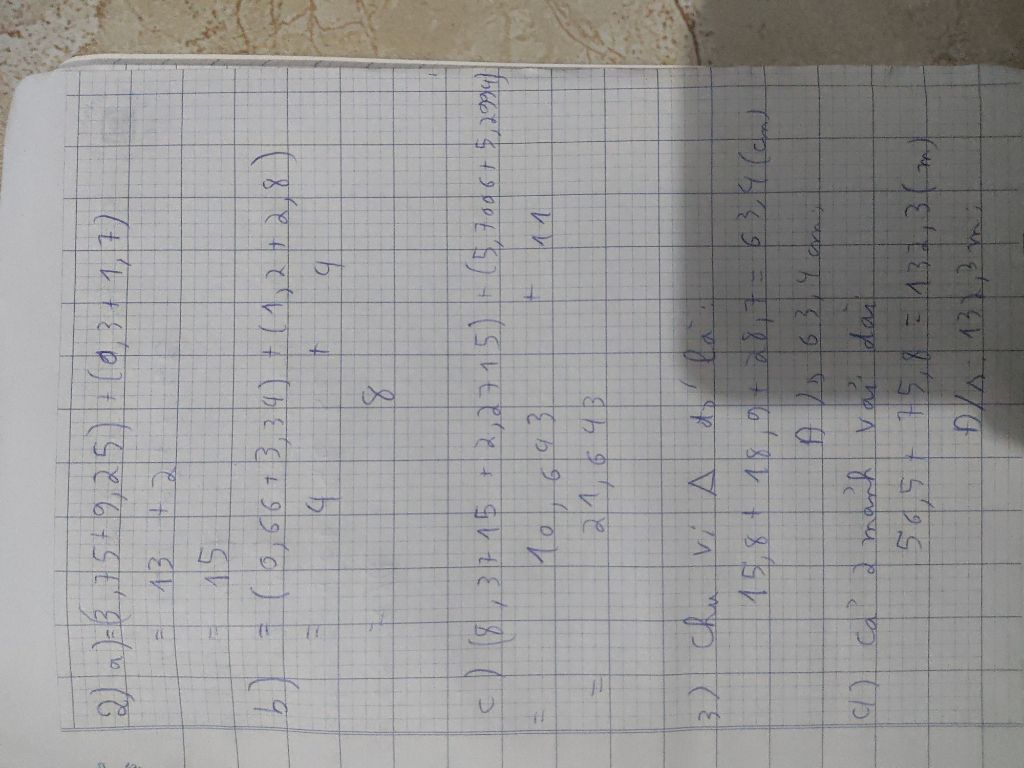 2) a) = (3,75 + 9,25) + (0,3 + 1,7)
= 13 + 2
= 15
b) = (0,66 + 3,34) + (1,2 + 2,8)
= 4 + 4
= 8
c) (8,3715 + 2,2715) + (5,7006 + 5,2994)
= 10,643 + 11
= 21,643
3) Chu vi Δ đó là:
15,8 + 18,9 + 28,7 = 63,4 (cm)
Đ/s 63,4 cm.
4) Cả 2 mảnh vải dài
56,5 + 75,8 = 132,3 (m)
Đ/s 132,3 m.